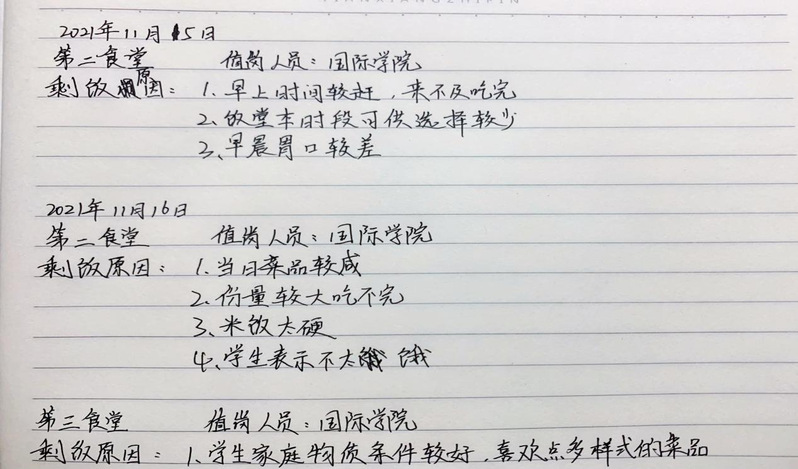 2021年11月15日
第二食堂 值岗人员：国际学院
剩饭原因：1、早上时间较赶，来不及吃完
2、饭堂本时段可供选择较少
3、早晨胃口较差
2021年11月16日
第二食堂 值岗人员：国际学院
剩饭原因：1、当日菜品较咸
2、份量较大吃不完
3、米饭太硬
4、学生表示不太饿
第三食堂 值岗人员：国际学院
剩饭原因：1、学生家庭物质条件较好，喜欢点多样式的菜品